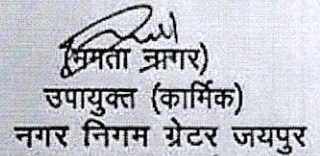 (नमता नागर)
उपायुक्त (कार्मिक)
नगर निगम ग्रेटर जयपुर